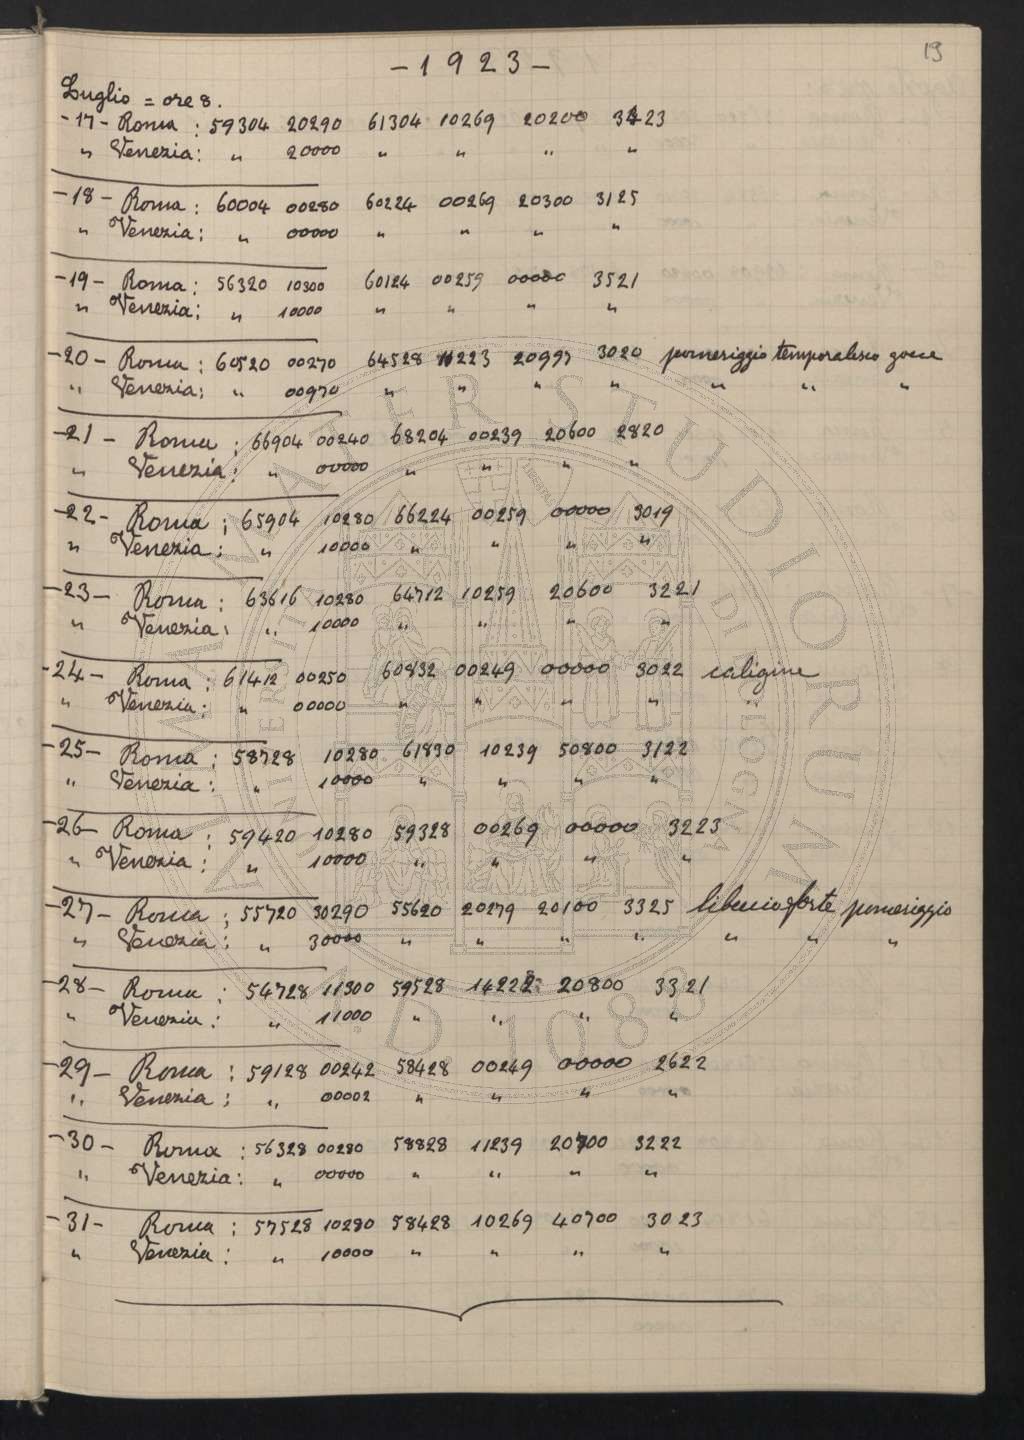 19
- 1923 -
Luglio = ore 8.
- 17 - Roma : 59304 20290 61304 10269 20200 3423
" Venezia : " 20000 " " " "
- 18 - Roma : 60004 00280 60224 00269 20300 3125
" Venezia : " 00000 " " " "
- 19 - Roma : 56320 10300 60124 00259 00000 3521
" Venezia : " 10000 " " " "
- 20 - Roma : 60520 00270 64528 11223 20997 3020 pomeriggio temporalesco gocce
" Venezia : " 00970 " " " " " " "
- 21 - Roma : 66904 00240 68204 00239 20600 2820
" Venezia : " 00000 " " " "
- 22 - Roma : 65904 10280 66224 00259 00000 3019
" Venezia : " 10000 " " " "
- 23 - Roma : 63616 10280 64712 10259 20600 3221
" Venezia : " 10000 " " " "
- 24 - Roma : 61412 00250 60832 00249 00000 3022 caligine
" Venezia : " 00000 " " " " "
- 25 - Roma : 58728 10280 61830 10239 50800 3122
" Venezia : " 10000 " " " "
- 26 - Roma : 59420 10280 59328 00269 00000 3223
" Venezia : " 10000 " " " "
- 27 - Roma : 55720 30290 55620 20279 20100 3325 libeccio forte pomeriggio
" Venezia : " 30000 " " " " " " "
- 28 - Roma : 54728 11300 59528 14228 20800 3321
" Venezia : " 11000 " " " "
- 29 - Roma : 59128 00242 58428 00249 00000 2622
" Venezia : " 00002 " " " "
- 30 - Roma : 56328 00280 58828 11239 20700 3222
" Venezia : " 00000 " " " "
- 31 - Roma : 57528 10280 58428 10269 40700 3023
" Venezia : " 10000 " " " "
ALMA MATER STUDIORUM
UNIVERSITÀ DI BOLOGNA
A.D. 1088